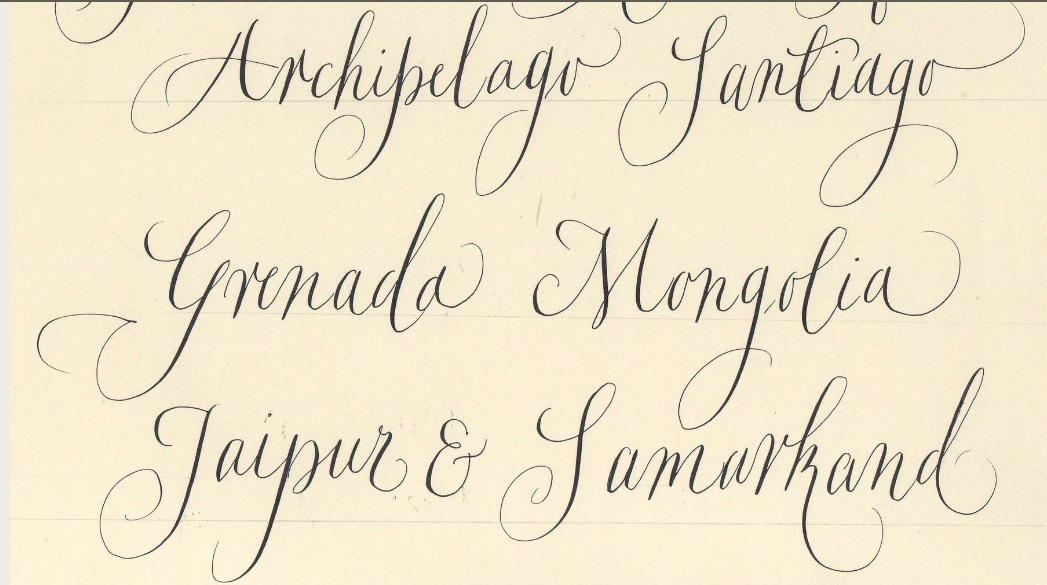 Archipelago Santiago
Grenada Mongolia
Jaipur & Samarkand